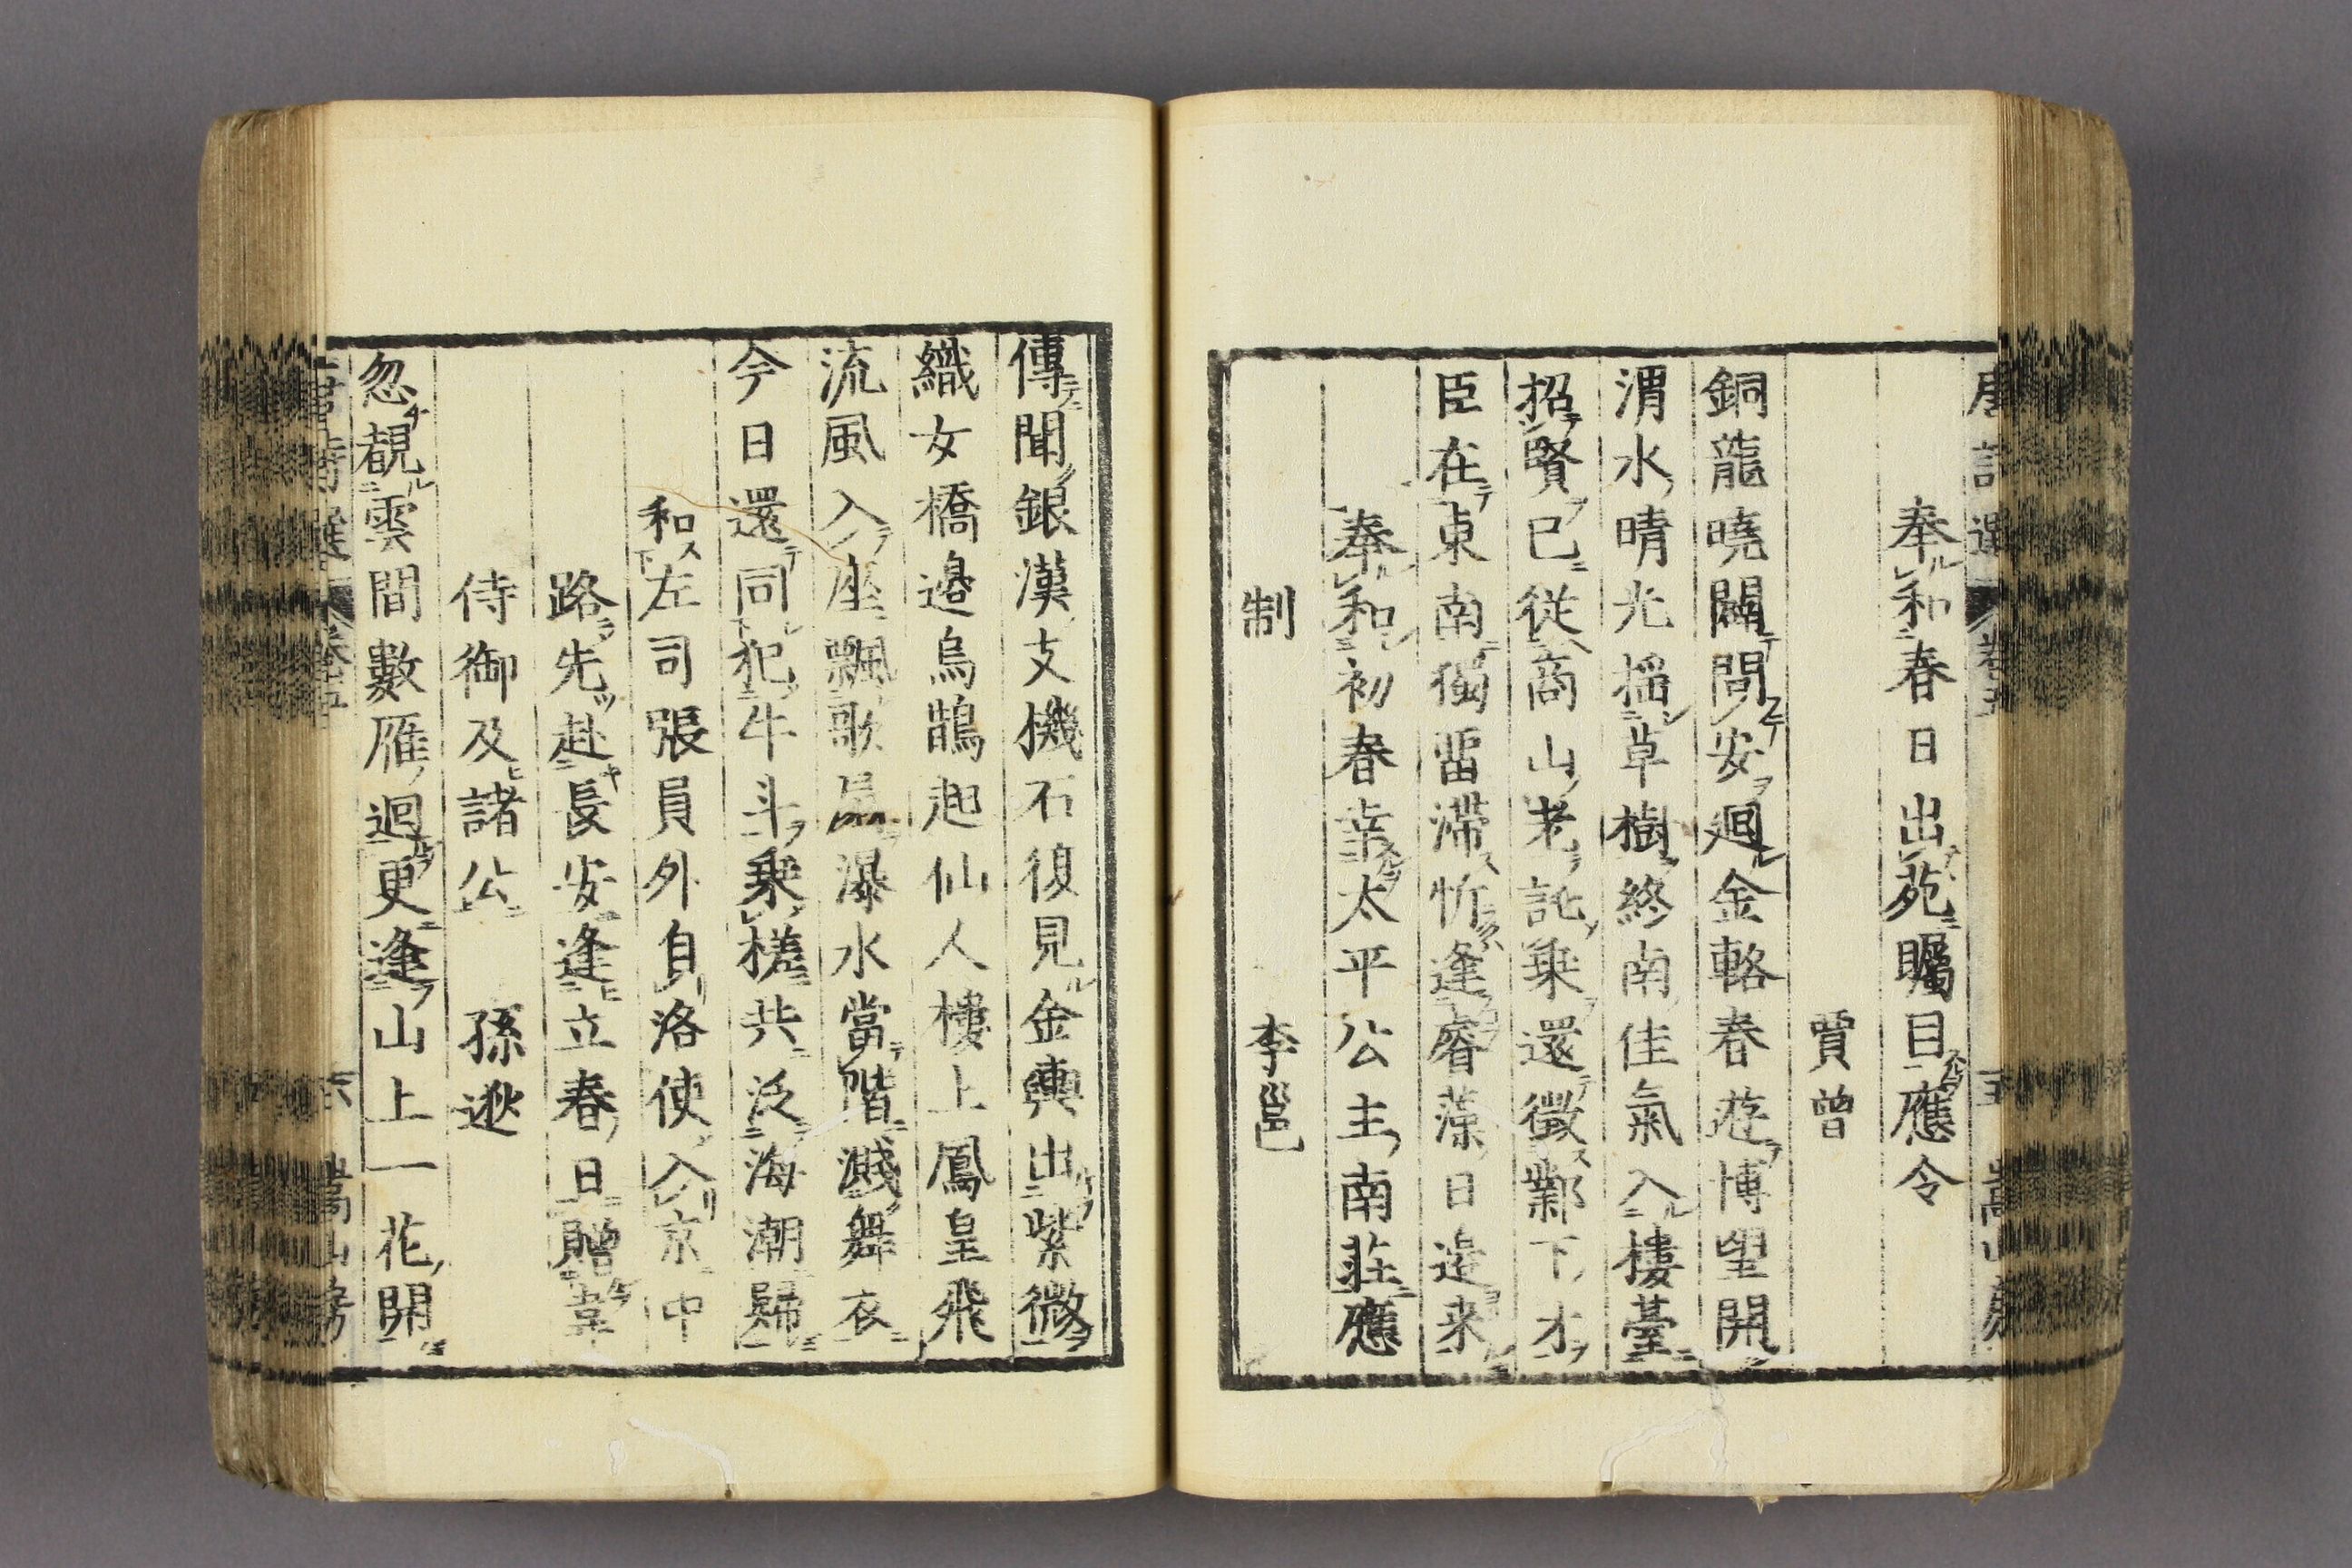 奉和春日出苑矚目應令
賈曾
銅龍曉闢問安廻金輅春遊博望開
渭水晴光揺草樹終南佳氣入樓臺
招賢已從商山老託乗還徴鄴下才
臣在東南獨畱滞忻逢睿藻日邉来
奉和初春幸太平公主南莊應
制 李邕
傳聞銀漢支機石復見金輿出紫微
織女橋邉烏鵲起仙人樓上鳳皇飛
流風入座飄歌扇瀑水當階濺舞衣
今日還同犯牛斗乗槎共泛海潮歸
和左司張員外自洛使入京中
路先赴長安逢立春日贈韋
侍御及諸公 孫逖
忽覩雲間數雁迴更逢山上一花開